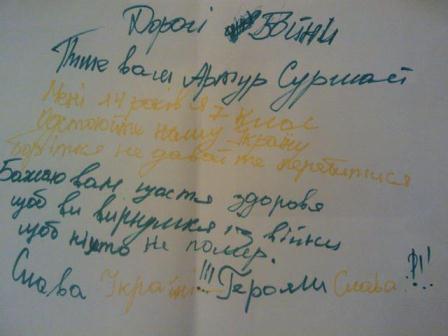 Дорогі Воїни
Пише вам Артур
Мені 14 років я 7 клас
Відстоюйте нашу Україну
не давайте
Бажаю вам щастя здоровя
щоб ви вернулися із війни
щоб ніхто не помер.
Слава Україні!!! Героям Слава!!!